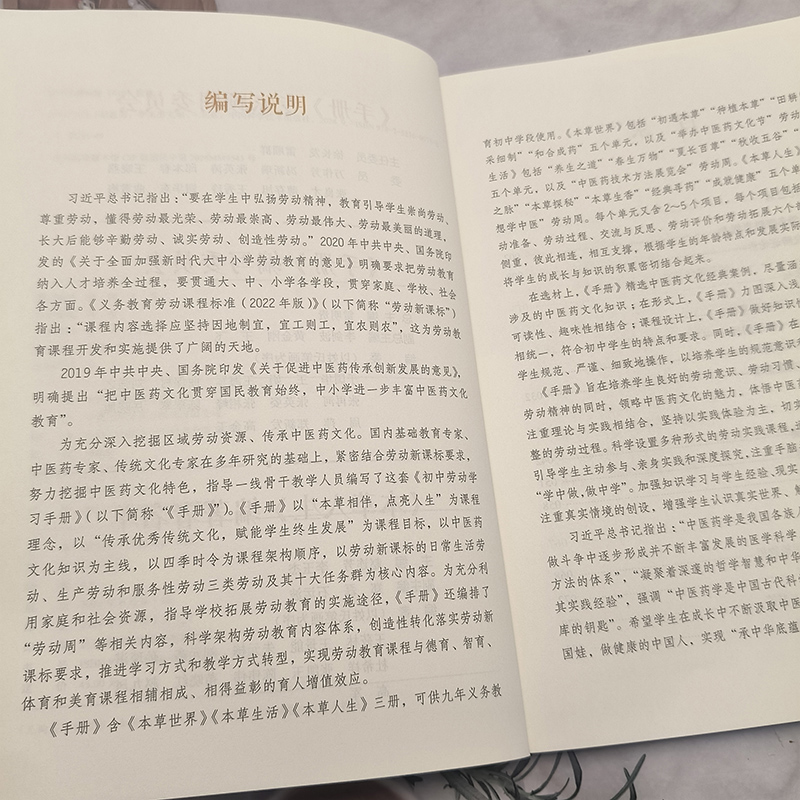 编写说明
习近平总书记指出：“要在学生中弘扬劳动精神，教育引导学生崇尚劳动、
尊重劳动，懂得劳动最光荣、劳动最崇高、劳动最伟大、劳动最美丽的道理，
长大后能够辛勤劳动、诚实劳动、创造性劳动。”2020年中共中央、国务院印
发的《关于全面加强新时代大中小学劳动教育的意见》明确要求把劳动教育
纳入人才培养全过程，要贯通大、中、小学各学段，贯穿家庭、学校、社会
各方面。《义务教育劳动课程标准（2022年版）》（以下简称“劳动新课标”）
指出：“课程内容选择应坚持因地制宜，宜工则工，宜农则农”，这为劳动教
育课程开发和实施提供了广阔的天地。
2019年中共中央、国务院印发《关于促进中医药传承创新发展的意见》，
明确提出“把中医药文化贯穿国民教育始终，中小学进一步丰富中医药文化
教育”。
为充分深入挖掘区域劳动资源、传承中医药文化。国内基础教育专家、
中医药专家、传统文化专家在多年研究的基础上，紧密结合劳动新课标要求，
努力挖掘中医药文化特色，指导一线骨干教学人员编写了这套《初中劳动学
习手册》（以下简称“《手册》”）。《手册》以“本草相伴，点亮人生”为课程
理念，以“传承优秀传统文化，赋能学生终生发展”为课程目标，以中医药
文化知识为主线，以四季时令为课程架构顺序，以劳动新课标的日常生活劳
动、生产劳动和服务性劳动三类劳动及其十大任务群为核心内容。为充分利
用家庭和社会资源，指导学校拓展劳动教育的实施途径，《手册》还编排了
“劳动周”等相关内容，科学架构劳动教育内容体系，创造性转化落实劳动新
课标要求，推进学习方式和教学方式转型，实现劳动教育课程与德育、智育、
体育和美育课程相辅相成、相得益彰的育人增值效应。
《手册》含《本草世界》《本草生活》《本草人生》三册，可供九年义务教
育初中学段使用。《本草世界》包括“初遇本草”“种植本草”“田耕
采细制”“和合成药”五个单元，以及“举办中医药文化节”劳动
生活》包括“养生之道”“春生万物”“夏长百草”“秋收五谷”“
五个单元，以及“中医药技术方法展览会”劳动周。《本草人生》
之脉”“本草探秘”“本草生香”“经典寻药”“成就健康”五个单
想学中医”劳动周。每个单元又含2~5个项目，每个项目包括
动准备、劳动过程、交流与反思、劳动评价和劳动拓展六个
侧重，彼此相连，相互支撑，根据学生的年龄特点和发展实际
将学生的成长与知识的积累密切结合起来。
在选材上，《手册》精选中医药文化经典案例，尽量涵
涉及的中医药文化知识；在形式上，《手册》力图深入浅
可读性、趣味性相结合；课程设计上，《手册》做好知识性
相统一，符合初中学生的特点和要求。同时，《手册》在
学生规范、严谨、细致地操作，以培养学生的规范意识
《手册》旨在培养学生良好的劳动意识、劳动习惯、
劳动精神的同时，领略中医药文化的魅力，体悟中医药
注重理论与实践相结合，坚持以实践体验为主，切实
整的劳动过程。科学设置多种形式的劳动实践课程，
引导学生主动参与、亲身实践和深度探究，注重手脑
“学中做，做中学”。加强知识学习与学生经验、现实
注重真实情境的创设，增强学生认识真实世界、解
习近平总书记指出：“中医药学是我国各族人
做斗争中逐步形成并不断丰富发展的医学科学
方法的体系”，“凝聚着深邃的哲学智慧和中华
其实践经验”，强调“中医药学是中国古代科
库的钥匙”。希望学生在成长中不断汲取中医
国娃，做健康的中国人，实现“承中华底蕴